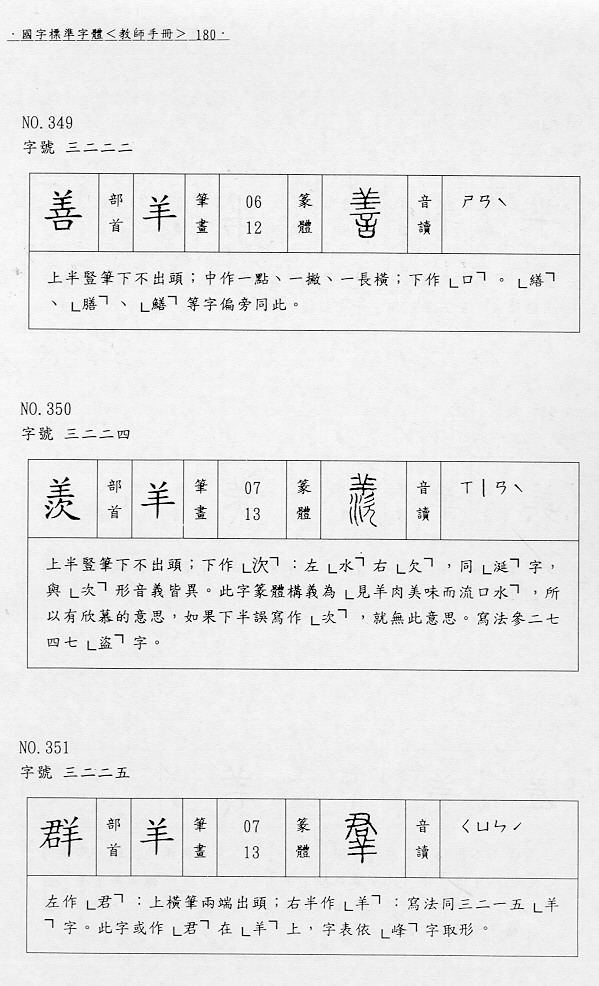 ·國字標準字體<教師手冊> 180·
NO.349
字號 三二二二
善 部首 羊 筆畫 06 12 篆體 善 音讀 ㄕㄢˋ
上半豎筆下不出頭；中作一點、一撇、一長橫；下作「口」。「繕」
、「膳」、「鱔」等字偏旁同此。
NO.350
字號 三二二四
羨 部首 羊 筆畫 07 13 篆體 羨 音讀 ㄒㄧㄢˋ
上半豎筆下不出頭；下作「㳄」：左「水」右「欠」，同「涎」字，
與「次」形音義皆異。此字篆體構義為「見羊肉美味而流口水」，所
以有欣慕的意思，如果下半誤寫作「次」，就無此意思。寫法參二七
四七「盜」字。
NO.351
字號 三二二五
群 部首 羊 筆畫 07 13 篆體 羣 音讀 ㄑㄩㄣˊ
左作「君」：上橫筆兩端出頭；右半作「羊」：寫法同三二一五「羊
」字。此字或作「君」在「羊」上，字表依「峰」字取形。